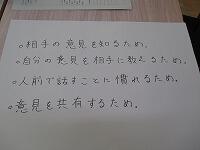 ○相手の意見を知るため。
○自分の意見を相手に教えるため。
○人前で話すことに慣れるため。
○意見を共有するため。